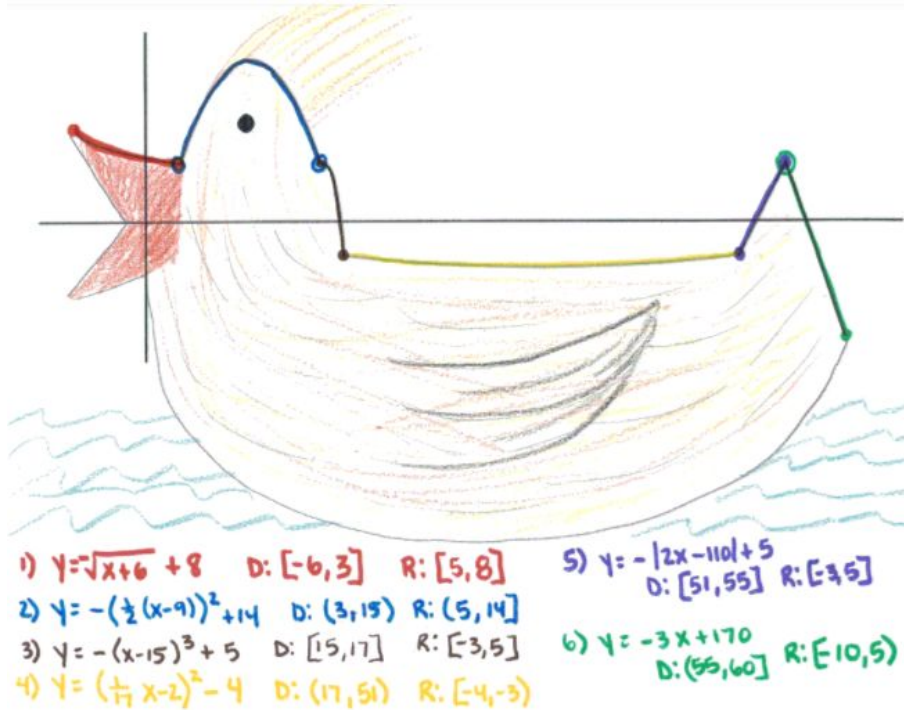 1) y=-√(x+6) + 8 D: [-6,3] R: [5,8]
2) y = -(½(x-9))² +14 D: (3,15) R: (5,14]
3) y = -(x-15)³ + 5 D: [15,17] R: [-3,5]
4) y = (1/17 x-2)² - 4 D: (17,51) R: [-4,-3)
5) y = -|2x-110|+5
D: [51,55] R: [-3,5]
6) y = -3x+170
D: (55,60] R: [-10,5)